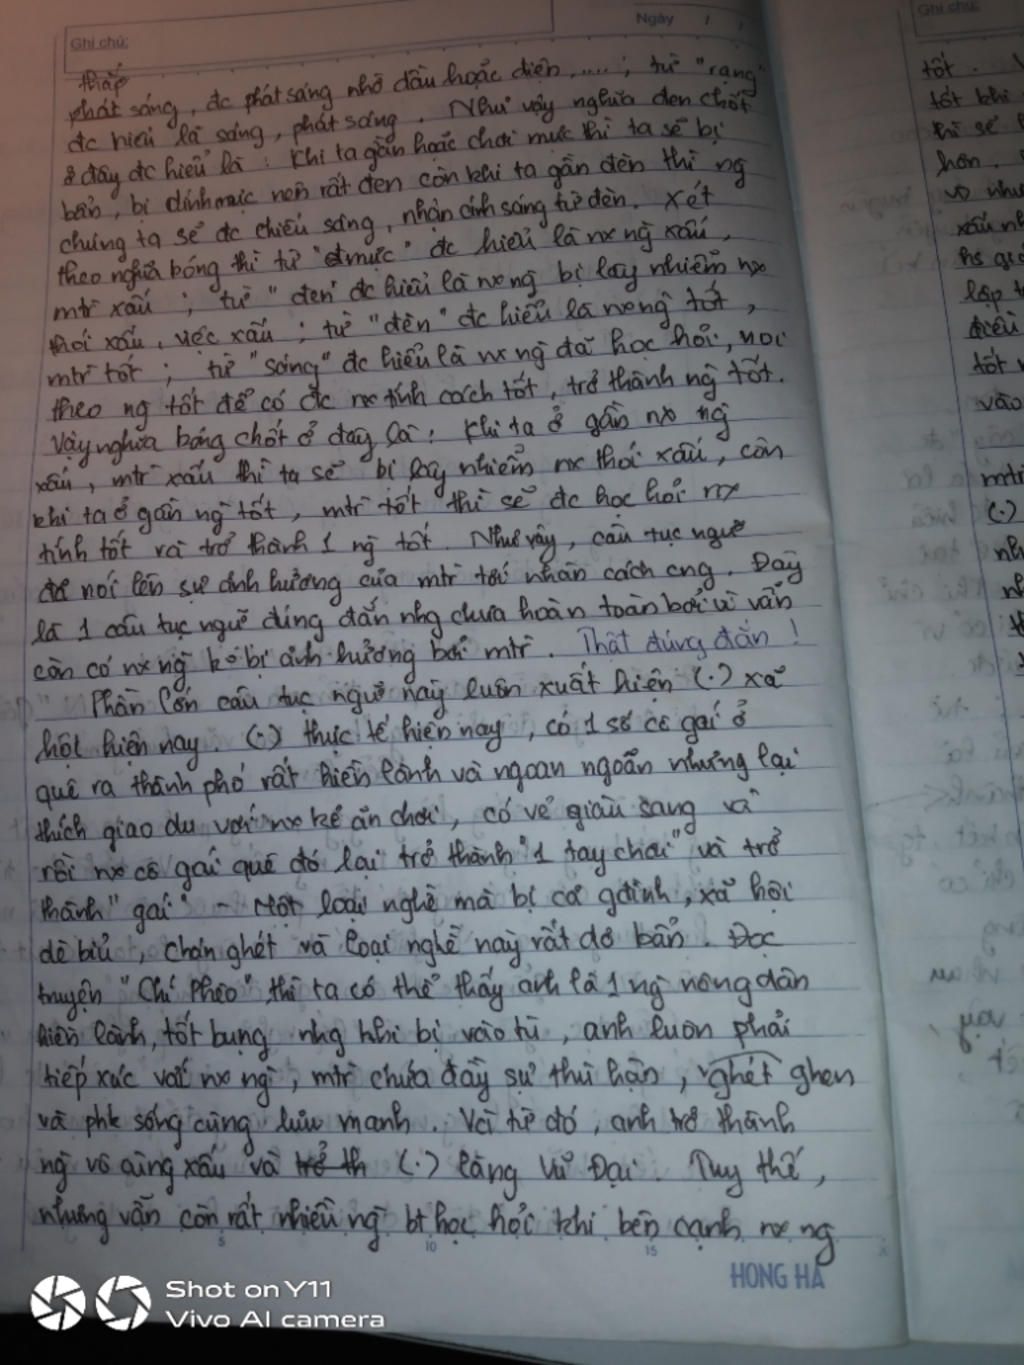 Ghi chú:
Ngày / /
thắp
phát sáng, đc phát sáng nhờ dầu hoặc điện,....; từ "rạng"
đc hiểu là sáng, phát sáng. Như vậy nghĩa đen chốt
ở đây đc hiểu là: Khi ta gần hoặc chơi mực thì ta sẽ bị
bẩn, bị dính mực nên rất đen còn khi ta gần đèn thì ng
chúng ta sẽ đc chiếu sáng, nhận ánh sáng từ đèn. Xét
theo nghĩa bóng thì từ "mực" đc hiểu là nx ng xấu,
mtr xấu; từ "đen" đc hiểu là nx ng bị lây nhiễm nx
thói xấu, việc xấu; từ "đèn" đc hiểu là nx ng tốt,
mtr tốt; từ "sáng" đc hiểu là nx ng đã học hỏi, noi
theo ng tốt để có đc nx tính cách tốt, trở thành ng tốt.
Vậy nghĩa bóng chốt ở đây là: Khi ta ở gần nx ng
xấu, mtr xấu thì ta sẽ bị lây nhiễm nx thói xấu, còn
khi ta ở gần ng tốt, mtr tốt thì sẽ đc học hỏi nx
tính tốt và trở thành 1 ng tốt. Như vậy, câu tục ngữ
đã nói lên sự ảnh hưởng của mtr tới nhân cách cng. Đây
là 1 câu tục ngữ đúng đắn nhg chưa hoàn toàn bởi vì vẫn
còn có nx ng ko bị ảnh hưởng bởi mtr. Thật đúng đắn!
Phần lớn câu tục ngữ này luôn xuất hiện (.) xã
hội hiện nay. (.) thực tế hiện nay, có 1 số cô gái ở
quê ra thành phố rất hiền lành và ngoan ngoãn nhưng lại
thích giao du với nx kẻ ăn chơi, có vẻ giàu sang và
rồi nx cô gái quê đó lại trở thành "1 tay chơi" và trở
thành "gái" - Một loại nghề mà bị cả gđình, xã hội
dè bỉu, chán ghét và loại nghề này rất dơ bẩn. Đọc
truyện "Chí Phèo" thì ta có thể thấy anh là 1 ng nông dân
hiền lành, tốt bụng nhg khi bị vào tù, anh luôn phải
tiếp xúc với nx ng, mtr chứa đầy sự thù hận, ghét ghen
và phk sống cùng lưu manh. Và từ đó, anh trở thành
ng vô cùng xấu và trở th (.) làng Vũ Đại. Tuy thế,
nhưng vẫn còn rất nhiều ng bt học hỏi khi bên cạnh nx ng
5 10 15
HONG HA
Shot on Y11
Vivo AI camera
Ghi chú:
tốt.
tốt khi
thì sẽ
hơn.
vd như
lập
tốt
vào
(.)